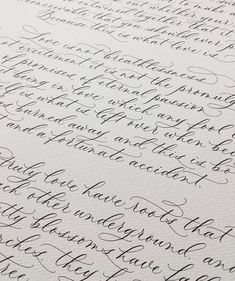 entwined together that it
inconceivable that you should ever p
Because this is what love is.
Love is not breathlessness,
excitement, it is not the promulg
of promises of eternal passion
being in love, which any fool c
is what is left over when be
burned away, and this is bo
t and a fortunate accident.
Truly love have roots that
each other underground, and
tty blossoms have fall
ches, they f
tree